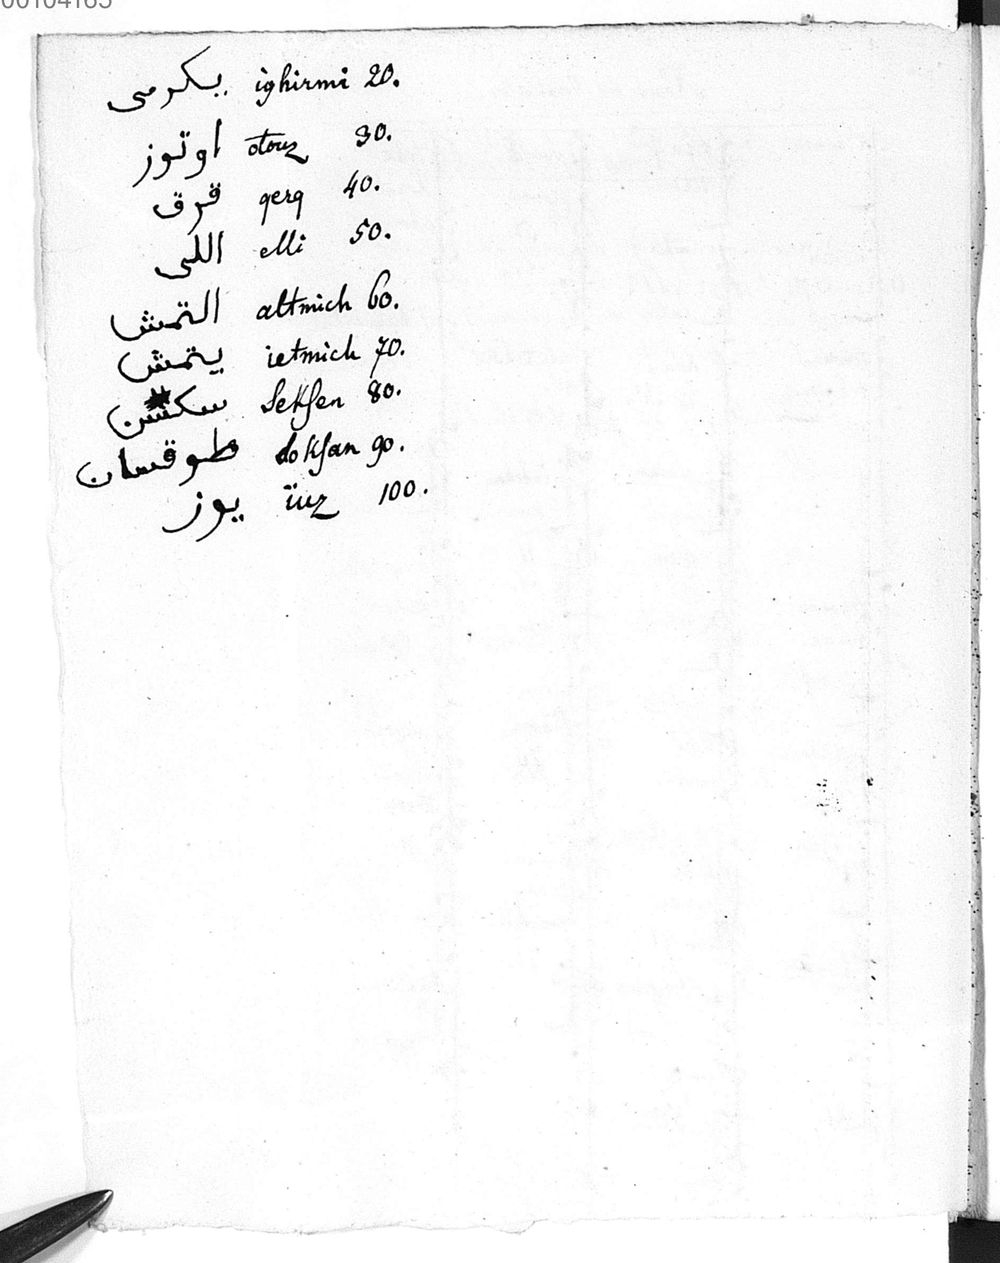 00104165
يكرمى ighirmi 20.
اوتوز otouz 30.
قرق qerq 40.
اللى elli 50.
التمش altmich 60.
يتمش ietmich 70.
سكسن sekſen 80.
طوقسان dokſan 90.
يوز ïuz 100.